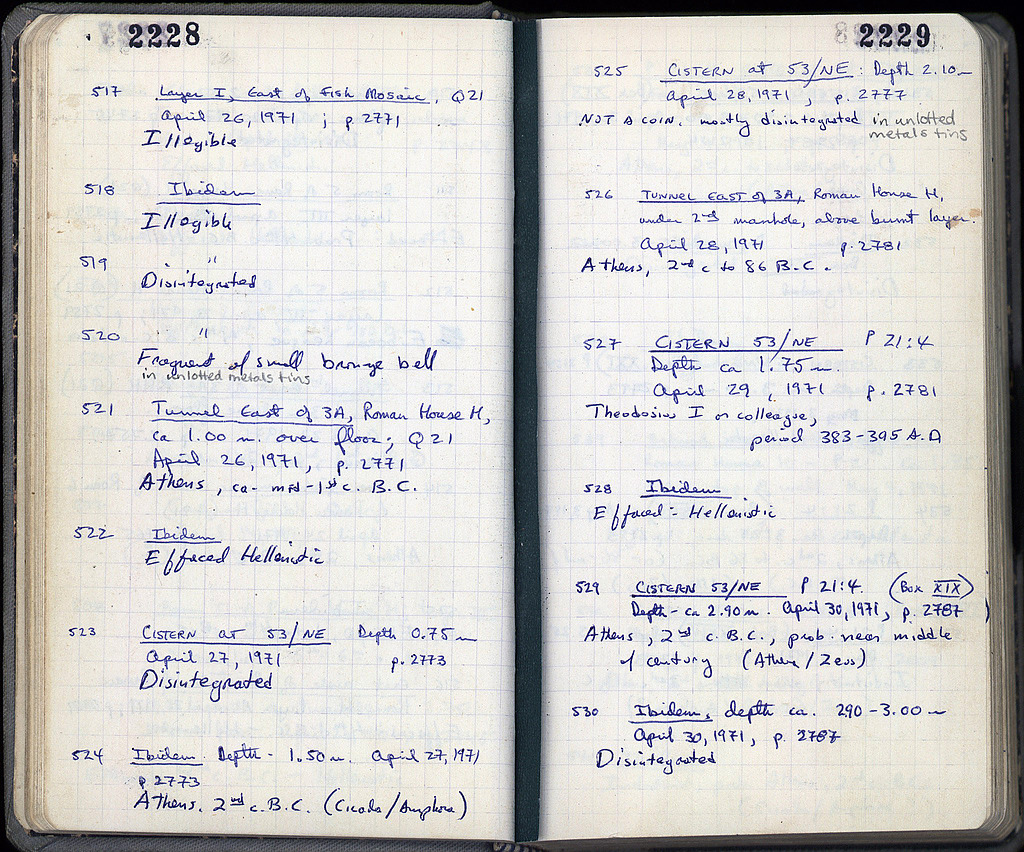 2228
517 Layer I, East of Fish Mosaic, Q21
April 26, 1971 ; p. 2771
Illegible
518 Ibidem
Illegible
519 "
Disintegrated
520 "
Fragment of small bronze bell
in unlotted metals tins
521 Tunnel East of 3A, Roman House H,
ca 1.00 m. over floor; Q21
April 26, 1971, p. 2771
Athens, ca. mid-1st c. B.C.
522 Ibidem
Effaced Hellenistic
523 CISTERN at 53/NE Depth 0.75 m
April 27, 1971 p. 2773
Disintegrated
524 Ibidem. Depth - 1.50 m. April 27, 1971
p 2773
Athens. 2nd c. B.C. (Cicada/Amphora)
2229
525 CISTERN at 53/NE : Depth 2.10 m
April 28, 1971 , p. 2777
NOT A COIN. mostly disintegrated in unlotted
metals tins
526 TUNNEL EAST OF 3A, Roman House H,
under 2nd manhole, above burnt layer.
April 28, 1971 p. 2781
Athens, 2nd c to 86 B.C.
527 CISTERN 53/NE P 21:4
Depth ca 1.75 m.
April 29, 1971 p. 2781
Theodosius I or colleague,
period 383-395 A.D
528 Ibidem
Effaced - Hellenistic
529 CISTERN 53/NE P 21:4. (Box XIX)
Depth - ca 2.90 m. April 30, 1971, p. 2787
Athens, 2nd c. B.C., prob. near middle
of century (Athena/Zeus)
530 Ibidem, depth ca. 290-3.00 m
April 30, 1971, p. 2787
Disintegrated